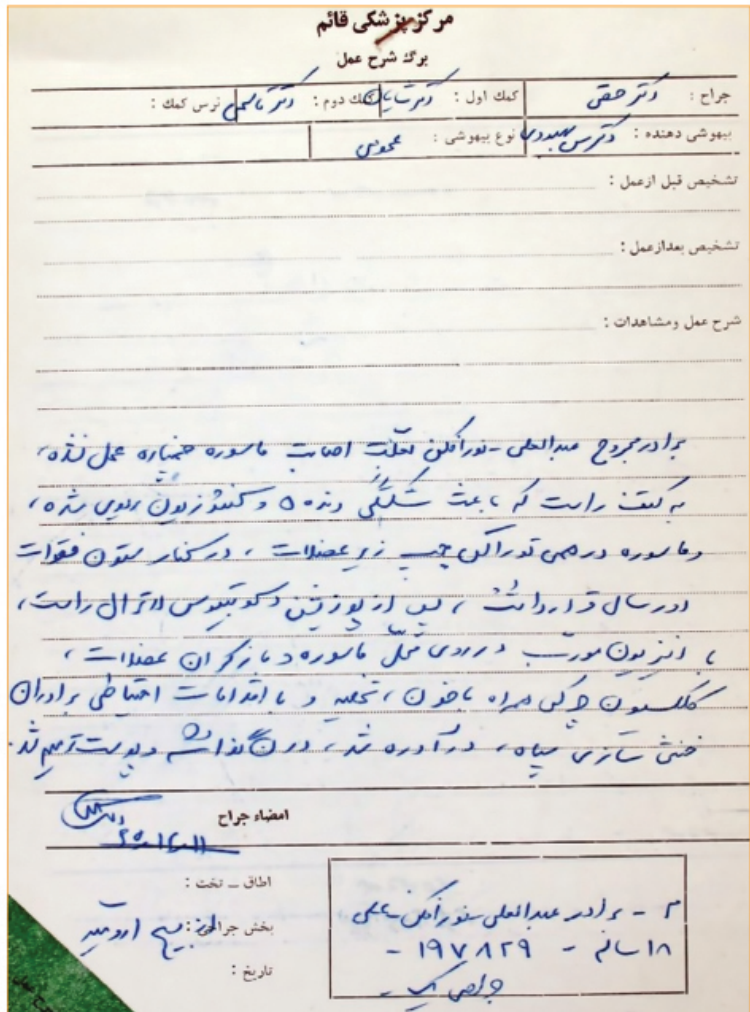 مرکز پزشکی قائم
برگ شرح عمل
جراح : دکتر حقی کمک اول : دکتر شایان کمک دوم : دکتر قاسمی نرس کمک :
بیهوشی دهنده : دکتر بهبودی نوع بیهوشی : عمومی
تشخیص قبل ازعمل :
تشخیص بعدازعمل :
شرح عمل ومشاهدات :
برادر مجروح عبدالعلی - نورافکن بعلت اصابت ماسوره خمپاره عمل نشده،
به کتف راست که باعث شکستگی دنده ۵ و کنتوزیون ریوی شده،
وماسوره در همی توراکس چپ زیر عضلات ، در کنار ستون فقرات
قرار داشت ، پس از پوزیشن دکوبیتوس لاترال راست،
با انزیون مورب در روی محل ماسوره و باز کردن عضلات ،
کلکسیون چرکی همراه باخون ، تخلیه و با اقدامات احتیاطی برادران
خنثی سازی سپاه ، درآورده شد ، درن گذاشته و پوست ترمیم شد.
امضاء جراح
اطاق ـ تخت :
بخش جراحی :
تاریخ :
۳ - برادر عبدالعلی - نورافکن - علی
۱۸ ساله - ۱۹۷۸۲۹ -